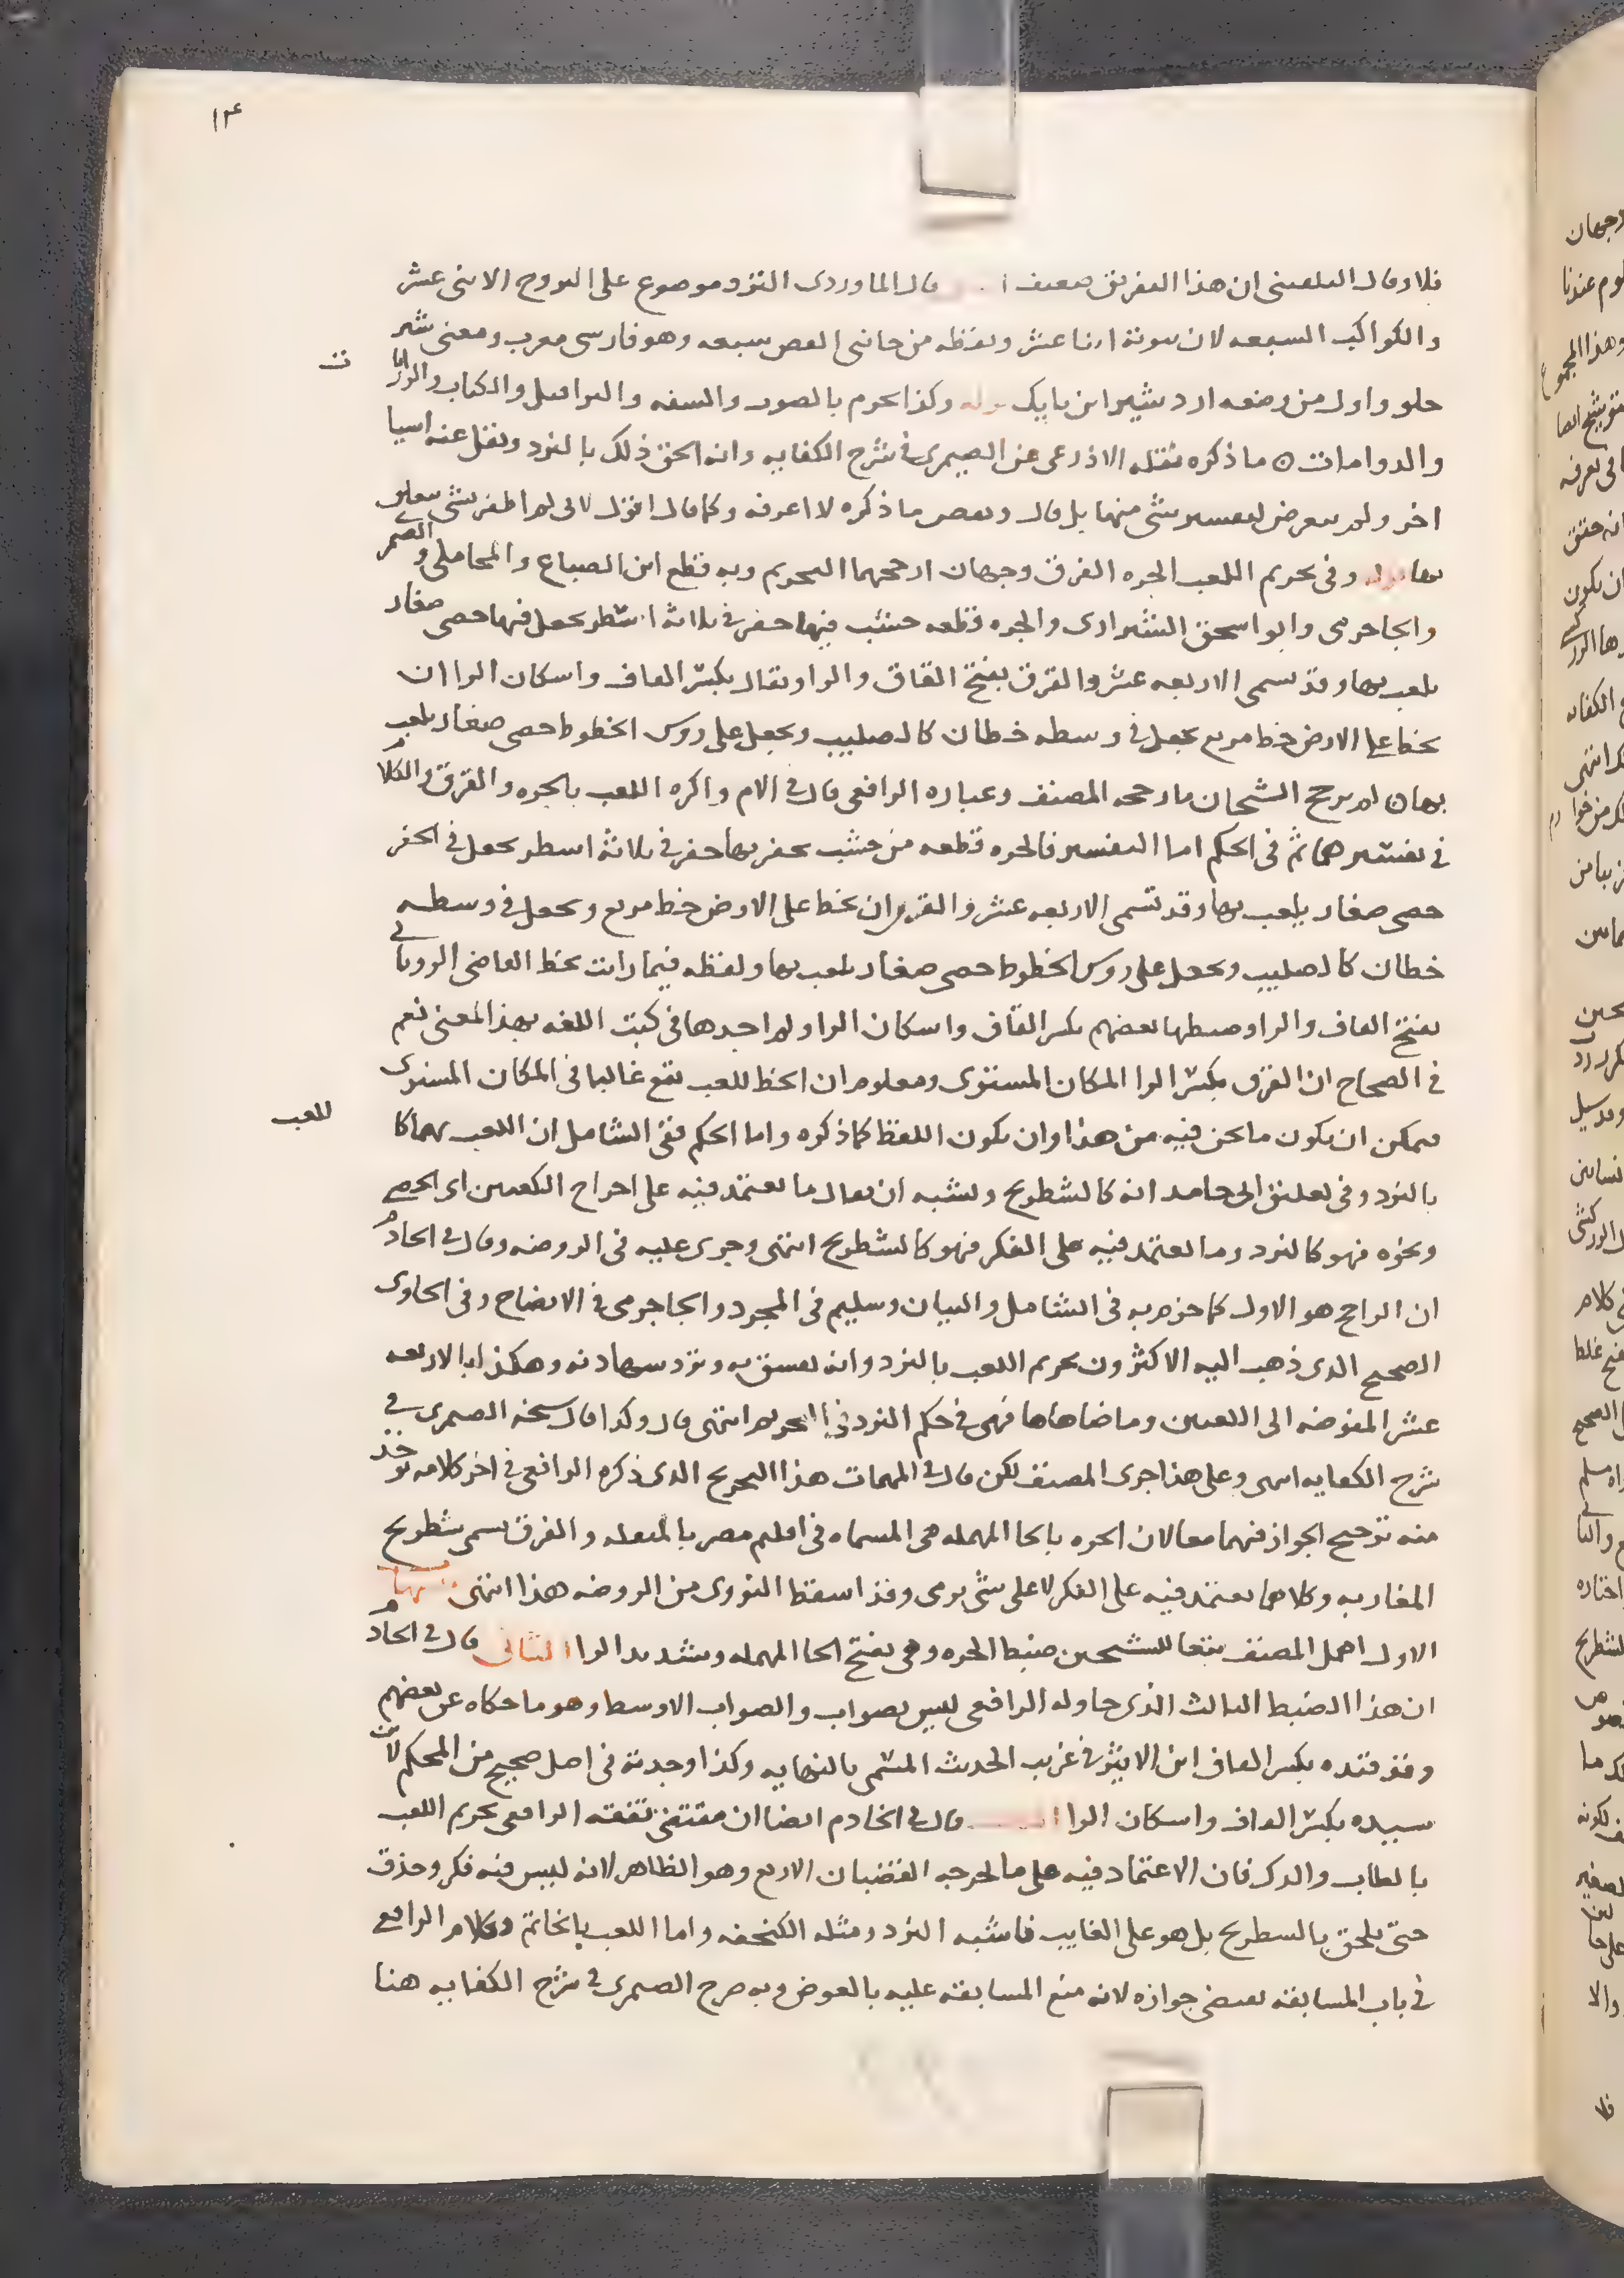 ١٣٤
فلا وقال البلقيني ان هذا التفريق ضعيف قال الماوردى النرد موضوع على البروج الاثنى عشر
والكواكب السبعه لان بيوته اثنا عشر ونقطه من جانبى الفص سبعه وهو فارسى معرب ومعنى شير
حلو واول من وضعه اردشير ابن بابك قوله وكذا يحرم بالصور والسفه والبواقيل والكعاب والرزانا
ت
والدوامات ما ذكره نقله الاذرعى عن الصيمرى فى شرح الكفايه وانه الحق ذلك بالنرد ونقل عنه اشيا
اخر ولم يتعرض لتفسير شى منها بل قال وبعض ما ذكره لا اعرفه وكما قال اقول لانى لم اظفر بشى يتعلق
بها قوله وفى تحريم اللعب الحزه القرق وجهان ارجحهما التحريم وبه قطع ابن الصباغ والمحاملى والصيمر
والجاجرمى وابو اسحق الشيرازى والحزه قطعه خشب فيها حفر فى ثلاثة اسطر يجعل فيها حصى صغار
يلعب بها وقد تسمى الاربعه عشر والقرق بفتح القاف والرا ويقال بكسر القاف واسكان الرا ان
يخط على الارض خط مربع يجعل فى وسطه خطان كالصليب ويجعل على روس الخطوط حصى صغار يلعب
بها لم يرجح الشيخان ما رجحه المصنف وعباره الرافعى قال فى الام واكره اللعب بالحزه والقرق والكلام
فى تفسيرهما ثم فى الحكم اما التفسير فالحزه قطعه من خشب يحفر بها حفر فى ثلاثة اسطر يجعل فى الحفر
حصى صغار يلعب بها وقد تسمى الاربعه عشر والقرق ان يخط على الارض خط مربع ويجعل فى وسطه
خطان كالصليب ويجعل على روس الخطوط حصى صغار يلعب بها ولفظه فيما رايت بخط القاضى الرويانى
بفتح القاف والرا وضبطها بعضهم بكسر القاف واسكان الرا ولم اجدها فى كتب اللغه بهذا المعنى نعم
فى الصحاح ان القرق بكسر الرا المكان المستوى ومعلوم ان الخط للعب يقع غالبا فى المكان المستوى
فيمكن ان يكون ما نحن فيه من هذا وان يكون اللفظ كما ذكره واما الحكم ففى الشامل ان اللعب بهما كا
للعب
بالنرد وفى تعليق ابى حامد انه كالشطرنج ويشبه ان يقال ما يعتمد فيه على اخراج الكعبين اى الحصى
ونحوه فهو كالنرد وما يعتمد فيه على الفكر فهو كالشطرنج انتهى وجرى عليه فى الروضه وقال فى الخادم
ان الراجح هو الاول كما جزم به فى الشامل والبيان وسليم فى المجرد والجاجرمى فى الايضاح وفى الحاوى
الصحيح الذى ذهب اليه الاكثرون تحريم اللعب بالنرد وانه يفسق به وترد شهادته وهكذا الاربعه
عشر المفوضه الى الكعبين وما ضاهاها فهى فى حكم النرد فى التحريم انتهى قال وكذا قال شيخه الصيمرى فى
شرح الكفايه انتهى وعلى هذا جرى المصنف لكن قال فى المهمات هذا الترجيح الذى ذكره الرافعى فى اخر كلامه يوخذ
منه ترجيح الجواز فيهما معا لان الحزه بالحا المهمله هى المسماه فى اقليم مصر بالمنقله والقرق يسمى شطرنج
المغاربه وكلاهما يعتمد فيه على الفكر لا على شى يرمى وقد اسقط النووى من الروضه هذا انتهى تنبيهات
الاول اهمل المصنف تبعا للشيخين ضبط الحزه وهى بفتح الحا المهمله وتشديد الرا الثانى قال فى الخادم
ان هذا الضبط الثالث الذى حاوله الرافعى ليس بصواب والصواب الاوسط وهو ما حكاه عن بعضهم
وقد قيده بكسر القاف ابن الاثير فى غريب الحديث المسمى بالنهايه وكذا وجدته فى اصل صحيح من المحكم لابن
سيده بكسر القاف واسكان الرا قال فى الخادم ايضا ان مقتضى تفقه الرافعى تحريم اللعب
بالطاب والدك فان الاعتماد فيه على ما تخرجه القضبان الاربع وهو الظاهر لانه ليس فيه فكر وحذق
حتى يلحق بالشطرنج بل هو على الغايب فاشبه النرد ومثله الكنجفه واما اللعب بالخاتم فكلام الرافعى
فى باب المسابقه يقتضى جوازه لانه منع المسابقه عليه بالعوض وبه صرح الصيمرى فى شرح الكفايه هنا